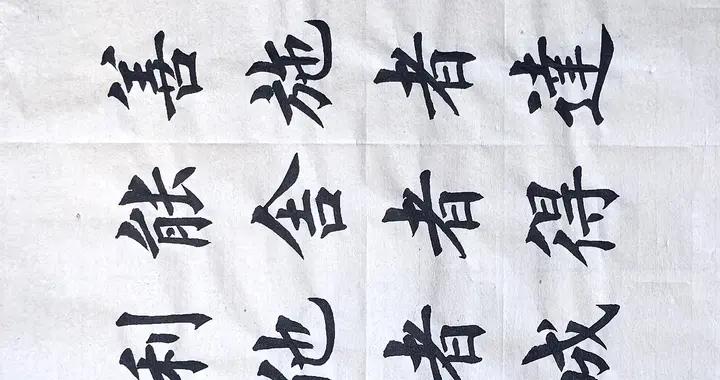 善施者達
能舍者得
利他者成